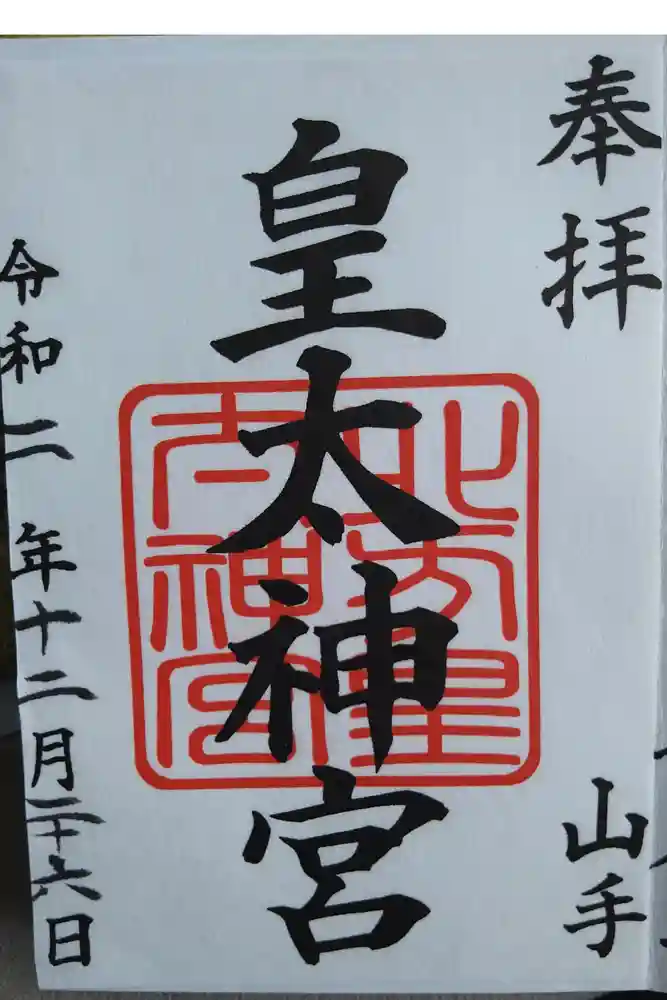 奉拝
山手
皇太神宮
北方皇
太神宮
令和二年十二月二十六日